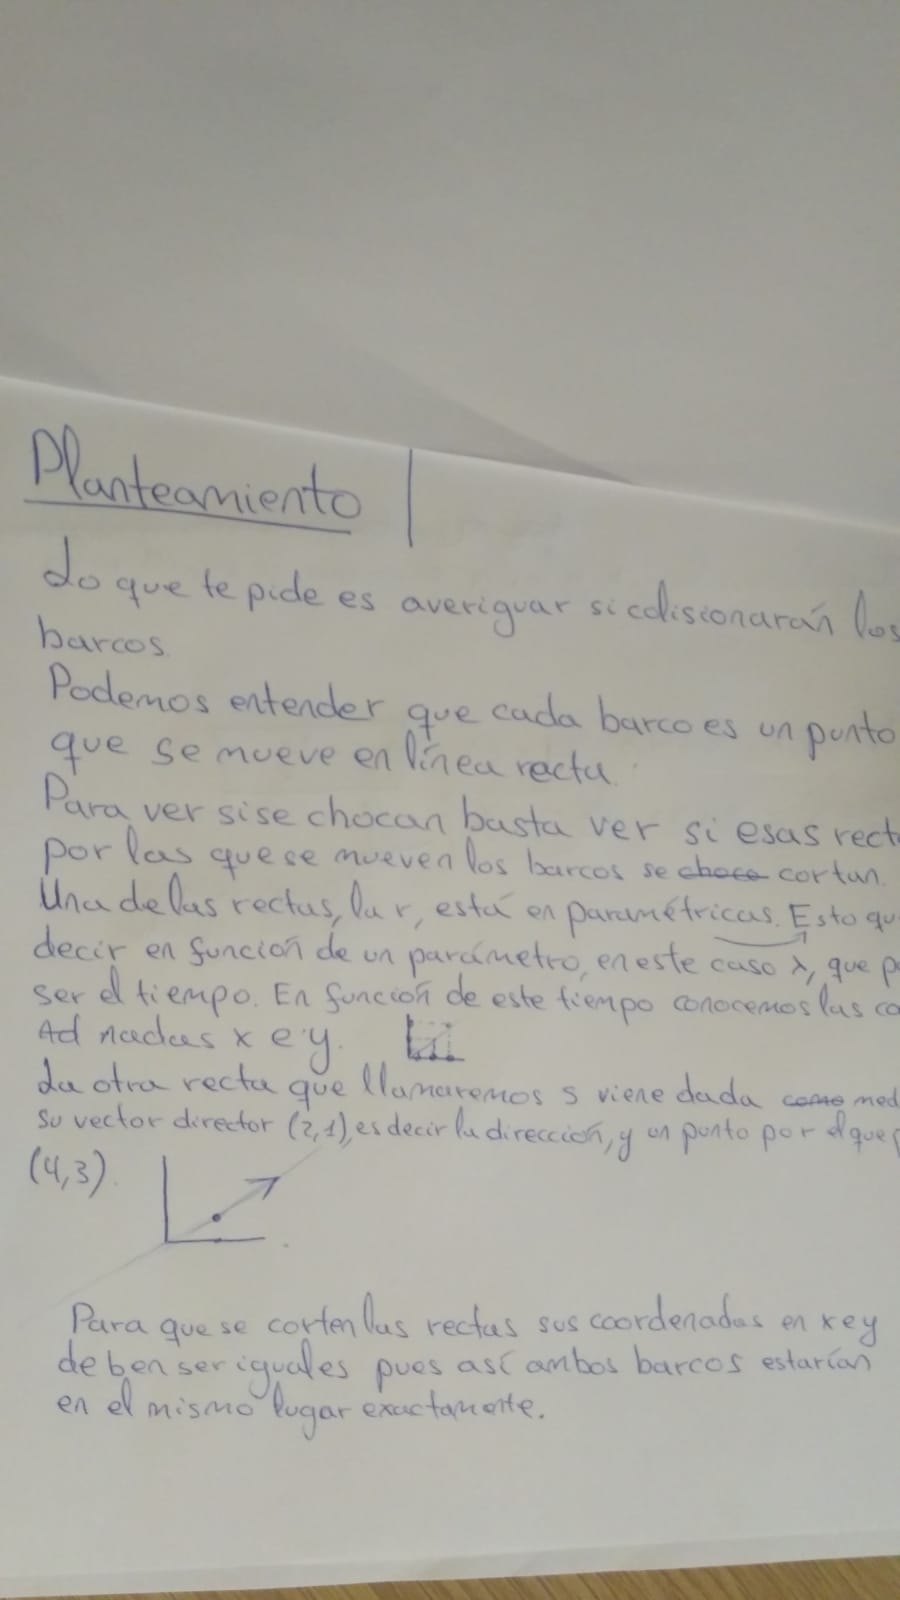 Planteamiento
Lo que te pide es averiguar si colisionarán los
barcos.
Podemos entender que cada barco es un punto
que se mueve en línea recta.
Para ver si se chocan basta ver si esas rect
por las que se mueven los barcos se choca cortan.
Una de las rectas, la r, está en paramétricas. Esto qu
decir en función de un parámetro, en este caso λ, que p
ser el tiempo. En función de este tiempo conocemos las co
nadas x e y.
La otra recta que llamaremos s viene dada como med
su vector director (2,1), es decir la dirección, y un punto por el que p
(4,3).
Para que se corten las rectas sus coordenadas en x e y
deben ser iguales pues así ambos barcos estarían
en el mismo lugar exactamente.